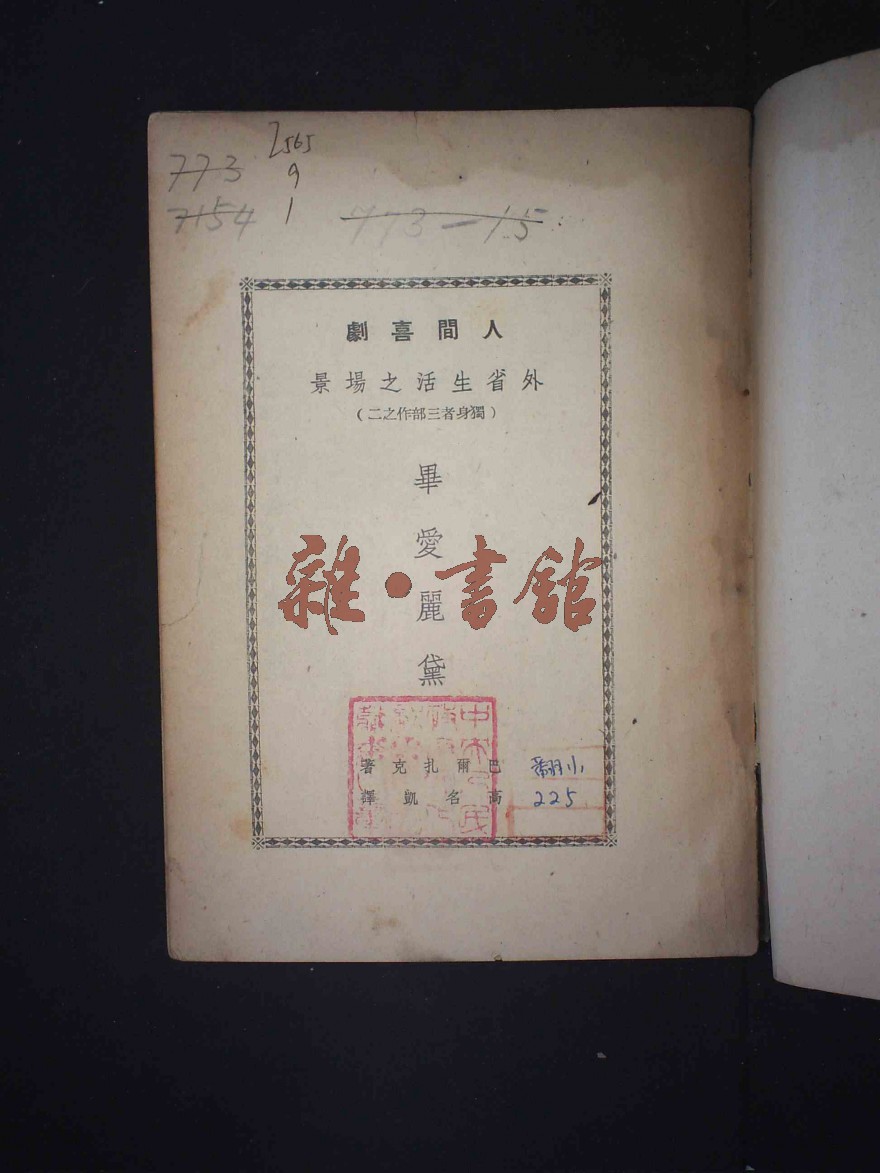 7565
773 9
7154 1
773-15
人間喜劇
外省生活之場景
(獨身者三部作之二)
畢愛麗黛
雜·書館
巴爾扎克著
高名凱譯
翻小
225